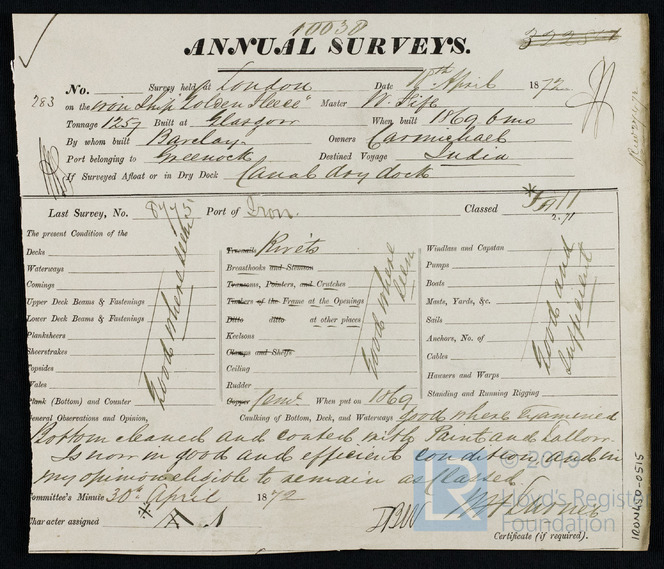 10030
ANNUAL SURVEYS.
No. Survey held at London Date April 1872
283 on the iron Ship "Golden Fleece" Master W.
Tonnage 1257 Built at Glasgow When built 1869 6 mo
By whom built Barclay Owners Carmichael
Port belonging to Greenock Destined Voyage India
If Surveyed Afloat or in Dry Dock Canal dry dock
Last Survey, No. Port of Iron. Classed
2.71
The present Condition of the
Decks
Waterways
Comings
Upper Deck Beams & Fastenings
Lower Deck Beams & Fastenings
Planksheers
Sheerstrakes
Topsides
Wales
Plank (Bottom) and Counter
Good where seen
Treenails Rivets
Breasthooks and Stemson
Transoms, Pointers, and Crutches
Timbers of the Frame at the Openings
Ditto ditto at other places
Keelsons
Clamps and Shelfs
Ceiling
Rudder
Copper Cem. When put on 1869
Good where seen
Windlass and Capstan
Pumps
Boats
Masts, Yards, &c.
Sails
Anchors, No. of
Cables
Hawsers and Warps
Standing and Running Rigging
Good and sufficient
General Observations and Opinion, Caulking of Bottom, Deck, and Waterways good where Examined
Bottom cleaned and coated with Paint and Tallow.
Is now in good and efficient condition and in
my opinion eligible to remain as Classed
Committee's Minute 30th April 1872
Character assigned
Certificate (if required).
© 2019
LR Lloyd's Register Foundation
IRON450-0515